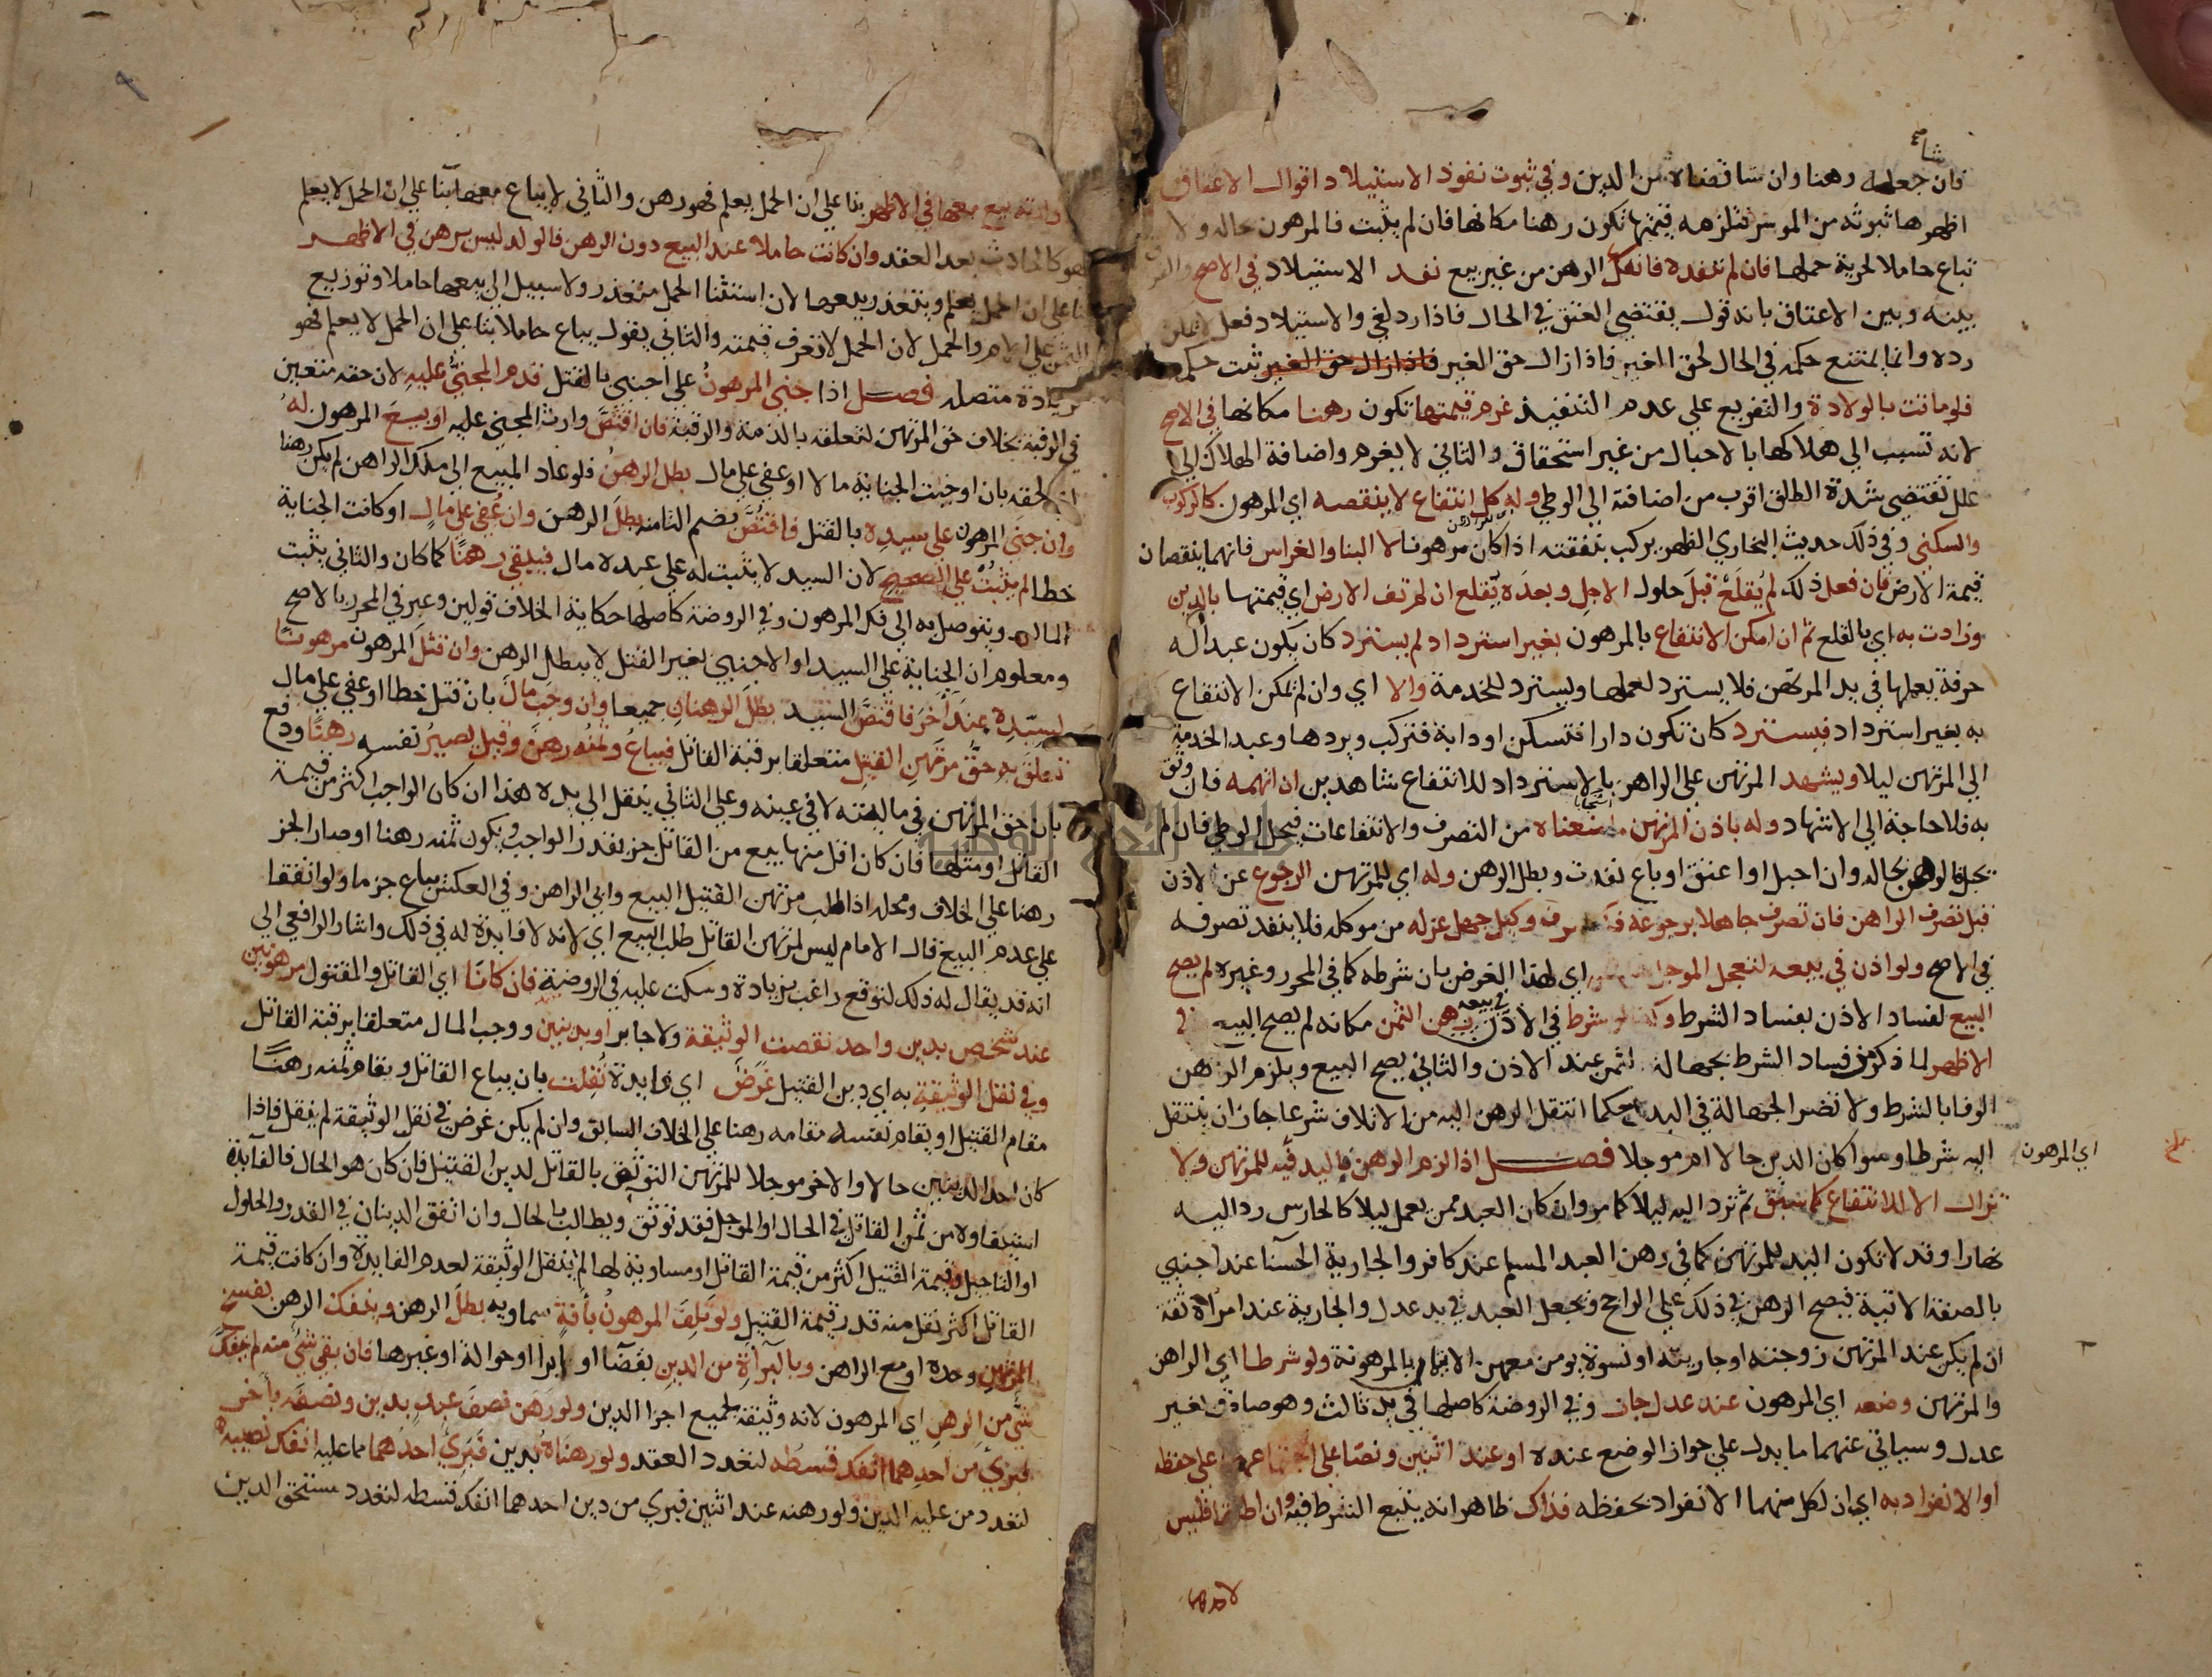 شا صح
فان جعله رهنا وان شا قضاه من الدين وفي ثبوت نفوذ الاستيلاد اقوال الاعتاق
اظهرها ثبوته من الموسر فتلزمه قيمتها تكون رهنا مكانها فان لم يثبت فالمرهون حاله ولا
تباع حاملا لحرية حملها فان لم ننفذه فانفك الرهن من غير بيع نفد الاستيلاد في الاصح والفرق
بينه وبين الاعتاق بانه قول يقتضي العتق في الحال فاذا رد لغي والاستيلاد فعل لا يمكن
رده وانما يمتنع حكمه في الحال لحق الغير فاذا زال حق الغير فاذا زال حق الغير ثبت حكمه
فلو ماتت بالولادة والتفريع علي عدم التنفيذ غرم قيمتها تكون رهنا مكانها في الاصح
لانه تسبب الي هلاكها بالاحبال من غير استحقاق والثاني لا يغرم واضافة الهلاك الي
علل تقتضي شدة الطلق اقرب من اضافته الي الوطي وله كل انتفاع لا ينقصه اي المرهون كالركوب
والسكني وفي ذلك حديث البخاري الظهر يركب بنفقته اذا كان مرهونا لا البنا والغراس فانهما ينقصان
قيمة الارض فان فعل ذلك لم يقلع قبل حلول الاجل وبعده يقلع ان لم تف الارض اي قيمتها بالدين
وزادت به اي بالقلع ثم ان امكن الانتفاع بالمرهون بغير استرداد لم يسترد كان يكون عبدا له
حرفة يعملها في يد المرتهن فلا يسترد لعملها ويسترد للخدمة والا اي وان لم يمكن الانتفاع
به بغير استرداد فيسترد كان تكون دارا فتسكن او دابة فتركب ويردها وعبد الخدمة
الي المرتهن ليلا ويشهد المرتهن علي الراهن بالاسترداد للانتفاع شاهدين ان اتهمه فان وثق
به فلا حاجة الي الاشهاد وله باذن المرتهن ما منعناه من التصرف والانتفاعات فيحل الوطي فان لم
تحبل فالرهن بحاله وان احبل او اعتق او باع نفدت وبطل الرهن وله اي للمرتهن الرجوع عن الاذن
قبل تصرف الراهن فان تصرف جاهلا برجوعه فكتصرف وكيل جهل عزله من موكله فلا ينفد تصرفه
في الاصح ولو اذن في بيعه لتعجل الموجل اي لهذا الغرض بان شرطه كما في المحرر وغيره لم يصح
البيع لفساد الاذن بفساد الشرط وكذا لو شرط في الاذن في بيعه رهن الثمن مكانه لم يصح البيع في
الاظهر لما ذكر من فساد الشرط بجهالة الثمن عند الاذن والثاني يصح البيع ويلزم الراهن
الوفا بالشرط ولا تضر الجهالة في البدل حكما انتقل الرهن اليه من الاتلاف شرعا جاز ان ينتقل
اليه شرطا وسوا كان الدين حالا ام موجلا فصل اذا لزم الرهن فاليد فيه للمرتهن ولا
اي المرهون
تزال الا للانتفاع كما سبق ثم ترد اليه ليلا كما مر وان كان العبد ممن يعمل ليلا كالحارس رد اليه
نهارا وقد لا تكون اليد للمرتهن كما في رهن العبد المسلم عند كافر والجارية الحسنا عند اجنبي
بالصفة الاتية فيصح الرهن في ذلك علي الراجح ويجعل العبد في يد عدل والجارية عند امراة ثقة
ان لم يكن عند المرتهن زوجته او جاريته او نسوة يومن معهن الالمام بالمرهونة ولو شرطا اي الراهن
والمرتهن وضعه اي المرهون عند عدل جاز وفي الروضة كاصلها في يد ثالث وهو صادق بغير
عدل وسياتي عنهما ما يدل علي جواز الوضع عنده او عند اثنين ونصا علي اجتماعهما علي حفظه
او الانفراد به اي ان لكل منهما الانفراد بحفظه فذاك ظاهر انه يتبع الشرط فيه وان اطلقا فليس
لاحدهما
ولدته بيع معها في الاظهر بنا علي ان الحمل يعلم فهو رهن والثاني لا يباع معها بنا علي ان الحمل لا يعلم
فهو كالحادث بعد العقد وان كانت حاملا عند البيع دون الرهن فالولد ليس برهن في الاظهر
بنا علي ان الحمل يعلم ويتعذر بيعها لان استثنا الحمل متعذر ولا سبيل الي بيعها حاملا وتوزيع
الثمن علي الام والحمل لان الحمل لا تعرف قيمته والثاني يقول يباع حاملا بنا علي ان الحمل لا يعلم فهو
زيادة متصلة فصل اذا جني المرهون علي اجنبي بالقتل قدم المجني عليه لان حقه متعين
في الرقبة بخلاف حق المرتهن لتعلقه بالذمة والرقبة فان اقتص وارث المجني عليه او بيع المرهون له
اي لحقه بان اوجبت الجناية مالا او عفي علي مال بطل الرهن فلو عاد المبيع الي ملك الراهن لم يكن رهنا
وان جني المرهون علي سيده بالقتل فاقتص بضم التا منه بطل الرهن وان عفي علي مال او كانت الجناية
خطا لم يثبت علي الصحيح لان السيد لا يثبت له علي عبده مال فيبقي رهنا كما كان والثاني يثبت
المال ويتوصل به الي فك المرهون وفي الروضة كاصلها حكاية الخلاف قولين وعبر في المحرر بالاصح
ومعلوم ان الجناية علي السيد او الاجنبي بغير القتل لا يبطل الرهن وان قتل المرهون مرهونا
لسيده عند اخر فاقتص السيد بطل الرهنان جميعا وان وجب مال بان قتل خطا او عفي علي مال
تعلق به حق مرتهن القتيل متعلقا برقبة القاتل فيباع وثمنه رهن وقيل يصير نفسه رهنا ودفع
بان حق المرتهن في ماليته لا في عينه وعلي الثاني ينقل الي يده هذا ان كان الواجب اكثر من قيمة
القاتل او مثلها فان كان اقل منها بيع من القاتل جز بقدر الواجب ويكون ثمنه رهنا او صار الجز
رهنا علي الخلاف ومحله اذا طلب مرتهن القتيل البيع وابي الراهن وفي العكس يباع جزما ولو اتفقا
علي عدم البيع قال الامام ليس لمرتهن القاتل طلب البيع اي لانه لا فايدة له في ذلك واشار الرافعي الي
انه قد يقال له ذلك لتوقع راغب بزيادة وسكت عليه في الروضة فان كانا اي القاتل والمقتول مرهونين
عند شخص بدين واحد نقصت الوثيقة ولا جابر او بدينين ووجب المال متعلقا برقبة القاتل
وفي نقل الوثيقة به اي دين القتيل غرض اي فايدة نقلت بان يباع القاتل ويقام ثمنه رهنا
مقام القتيل او يقام نفسه مقامه رهنا علي الخلاف السابق وان لم يكن غرض في نقل الوثيقة لم ينقل فاذا
كان احد الدينين حالا والاخر موجلا للمرتهن التوثق بالقاتل لدين القتيل فان كان هو الحال فالفايدة
استيفاوه من ثمن القاتل في الحال او الموجل فقد توثق ويطالب بالحال وان اتفق الدينان في القدر والحلول
او التاجيل وقيمة القتيل اكثر من قيمة القاتل او مساوية لها لم ينقل الوثيقة لعدم الفايدة وان كانت قيمة
القاتل اكثر نقل منه قدر قيمة القتيل ولو تلف المرهون بافة سماوية بطل الرهن وينفك الرهن بفسخ
المرتهن وحده او مع الراهن وبالبراة من الدين بقضا او ابرا او حوالة او غيرها فان بقي شي منه لم ينفك
شي من الرهن اي المرهون لانه وثيقة لجميع اجزا الدين ولو رهن نصف عبد بدين ونصفه باخر
فبري من احدهما انفك قسطه لتعدد العقد ولو رهناه بدين فبري احدهما مما عليه انفك نصيبه
لتعدد من عليه الدين ولو رهنه عند اثنين فبري من دين احدهما انفك قسطه لتعدد مستحق الدين